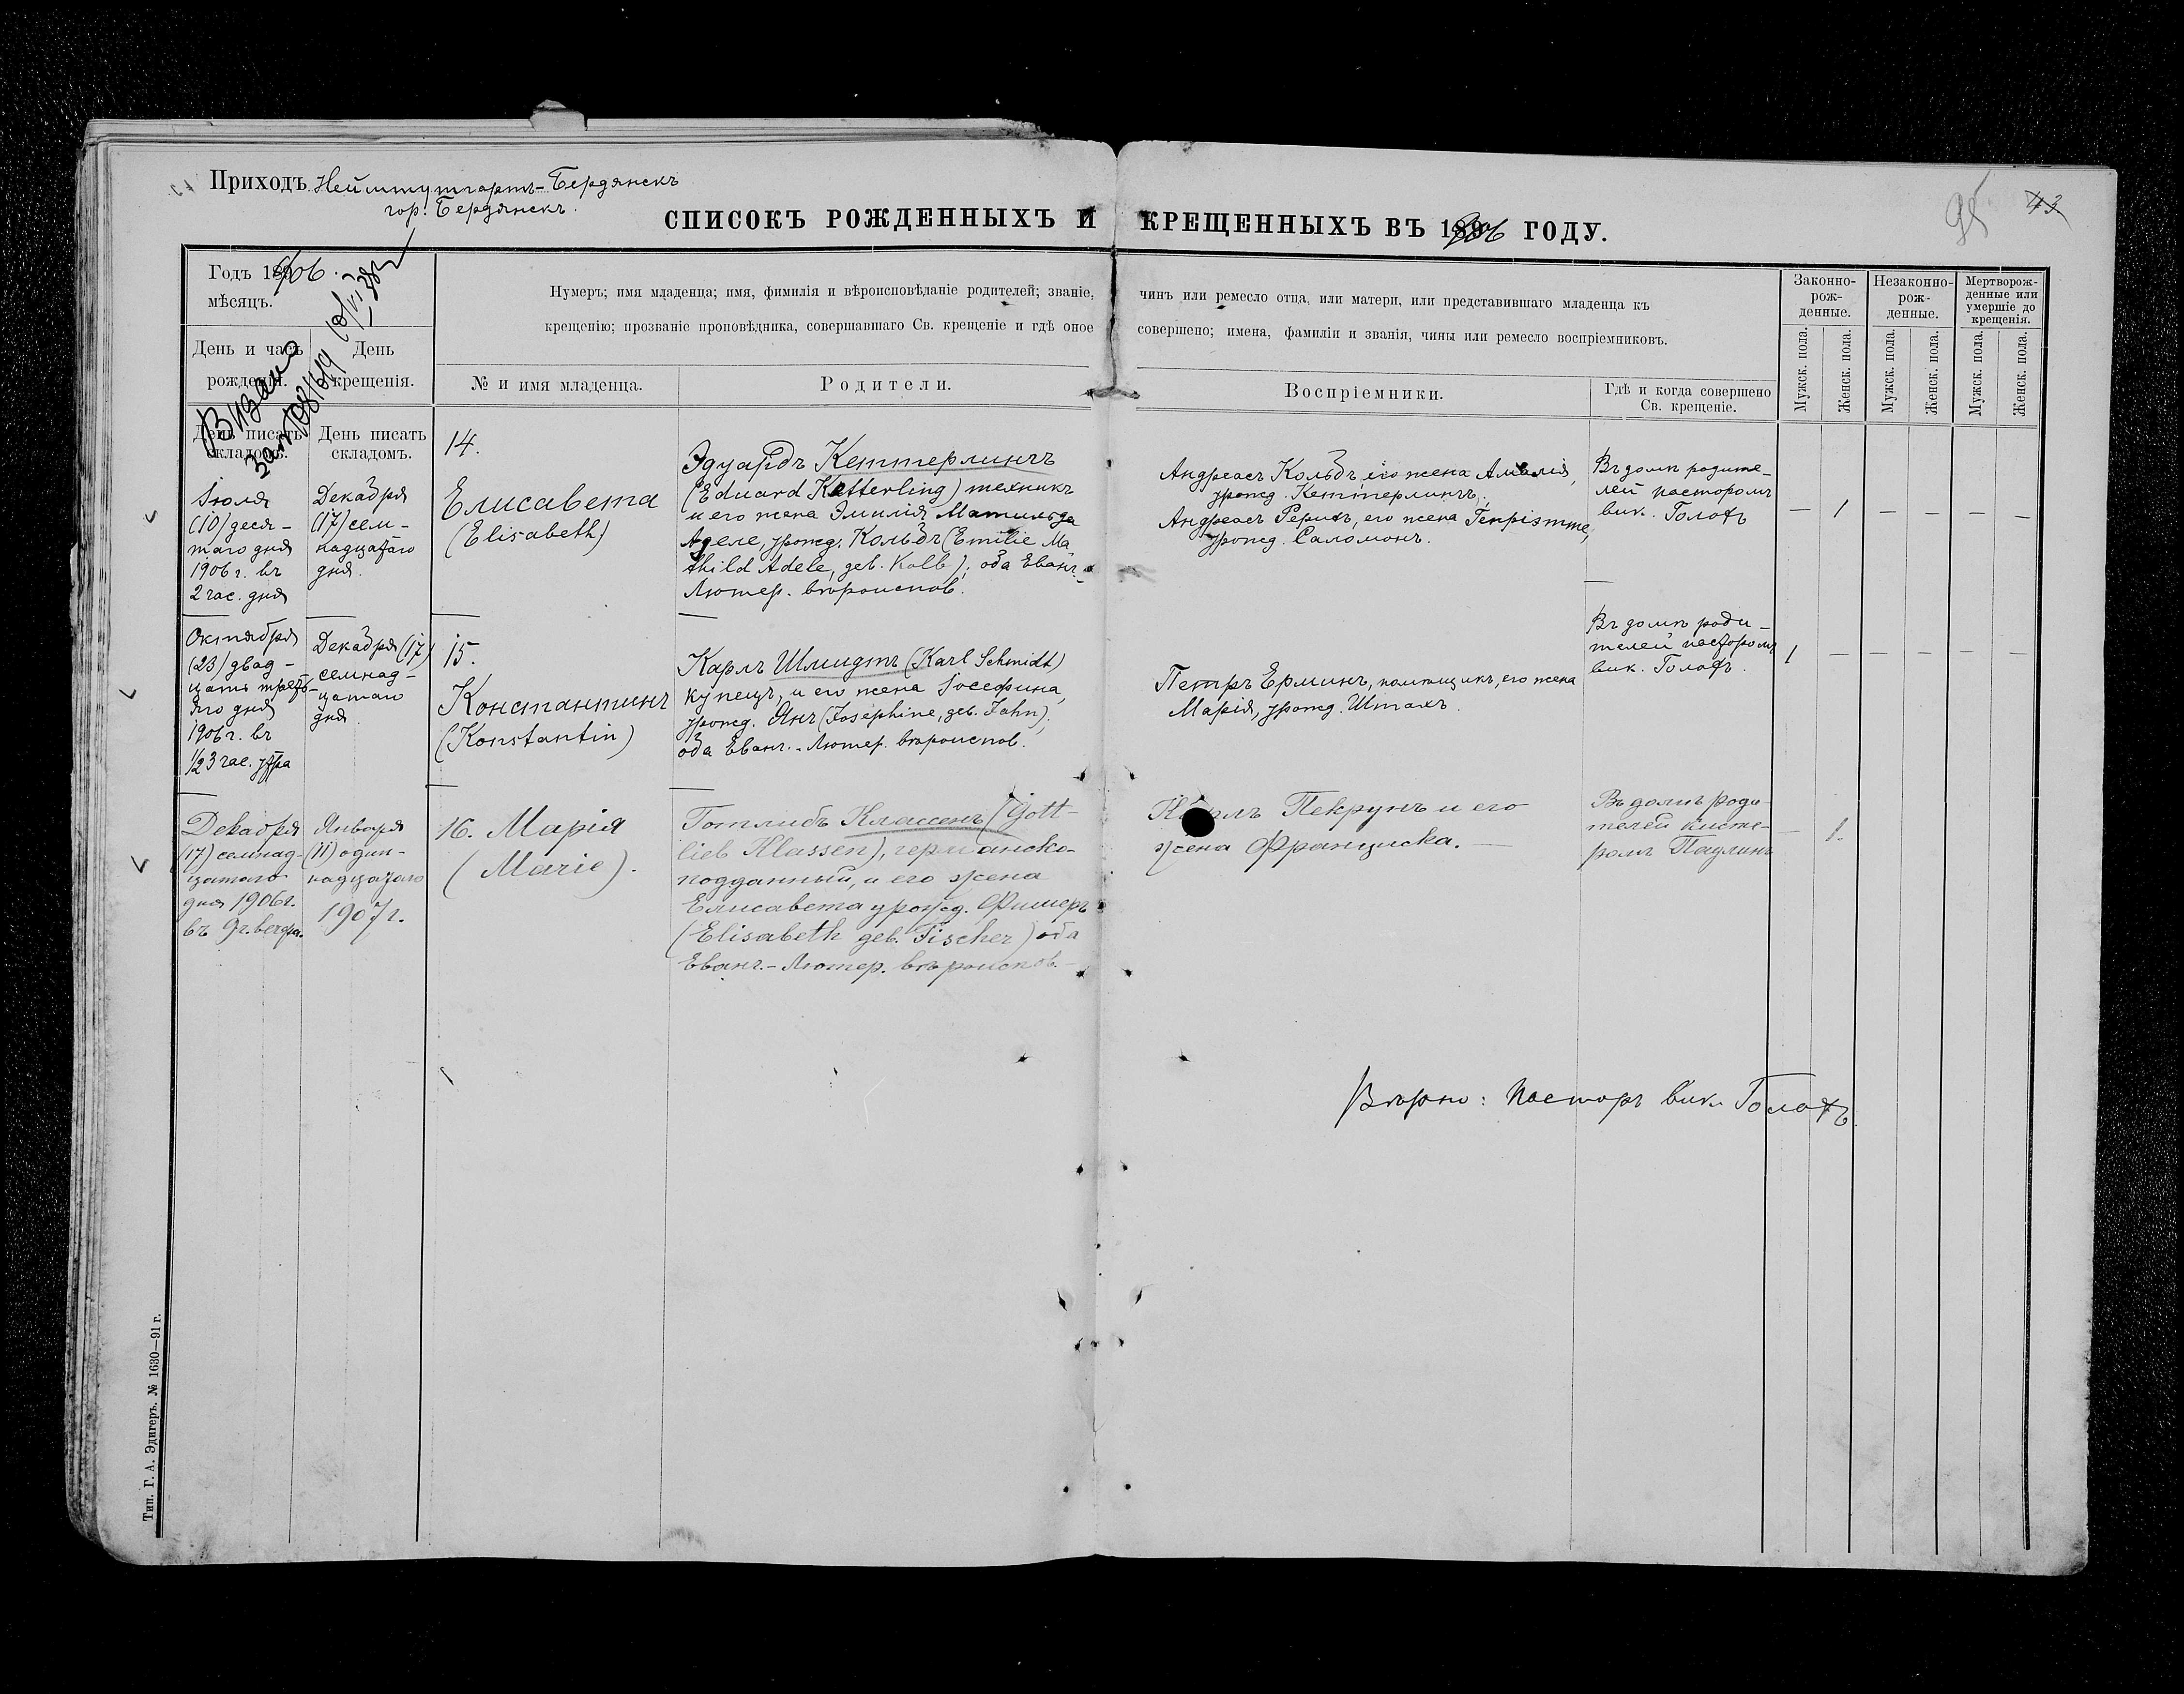 Приходъ Нейштутгартъ-Бердянскъ
гор. Бердянскъ.
СПИСОКЪ РОЖДЕННЫХЪ И КРЕЩЕННЫХЪ ВЪ 1906 ГОДУ.
95 43
Годъ 1906.
мѣсяцъ.
День и часъ рожденія.
День крещенія.
Нумеръ; имя младенца; имя, фимилія и вѣроисповѣданіе родителей; званіе, чинъ или ремесло отца, или матери, или представившаго младенца къ
крещенію; прозваніе проповѣдника, совершавшаго Св. крещеніе и гдѣ оное совершено; имена, фамиліи и званія, чины или ремесло воспріемниковъ.
№ и имя младенца.
Родители.
Воспріемники.
Гдѣ и когда совершено
Св. крещеніе.
Законно-
рож-
денные.
Незаконно-
рож-
денные.
Мертворож-
денные или
умершіе до
крещенія.
Мужск. пола.
Женск. пола.
Мужск. пола.
Женск. пола.
Мужск. пола.
Женск. пола.
День писать
складомъ.
День писать
складомъ.
Іюля
(10) деся-
таго дня
1906 г. въ
2 час. дня
Декабря
(17) сем-
надцатаго
дня.
14.
Елисавета
(Elisabeth)
Эдуардъ Кеттерлингъ
(Eduard Ketterling) техникъ
и его жена Эмилія Матильда
Аделе, урожд. Кольбъ (Emilie Ma
thild Adele, geb. Kolb); оба Еванг.-
Лютер. вѣроиспов.
Андреасъ Кольбъ, его жена Амалія,
урожд. Кеттерлингъ.
Андреасъ Рерихъ, его жена Генріэтте,
урожд. Саломонъ.
Въ домѣ родите-
лей пасторомъ
вик. Голофъ
— 1 — — — —
Октября
(23) двад-
цать треть-
яго дня
1906 г. въ
1/2 3 час. утра
Декабря (17)
семнад-
цатаго
дня.
15.
Константинъ
(Konstantin)
Карлъ Шмидтъ (Karl Schmidt)
купецъ, и его жена Іосефина,
урожд. Янъ (Josephine, geb. Jahn);
оба Еванг.-Лютер. вѣроиспов.
Петръ Ерминъ, помѣщикъ, его жена
Марія, урожд. Штахъ.
Въ домѣ роди-
телей пасторомъ
вик. Голофъ.
1 — — — — —
Декабря
(17) семнад-
цатаго
дня 1906 г.
въ 9 г. вечера.
Января
(11) один-
надцатаго
1907 г.
16. Марія
(Marie).
Готлибъ Классенъ (Gott-
lieb Klassen), германско-
подданный, и его жена
Елисавета урожд. Фишеръ
(Elisabeth geb. Fischer) оба
Еванг.-Лютер. вѣроиспов.-
Карлъ Пекрунъ и его
жена Франциска. —
Въ домѣ роди-
телей кисте-
ромъ Паулинъ
— 1.
Вѣрно: Пасторъ вик. Голофъ.
Тип. Г. А. Эдигеръ. № 1630—91 г.